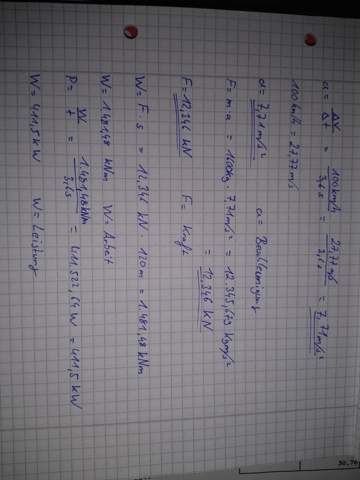 a = Δv / Δt = 100 km/h / 3,6 s = 27,77 m/s / 3,6 s = 7,71 m/s²
100 km/h = 27,77 m/s
a = 7,71 m/s² a =
F = m·a = 1600kg · 7,71 m/s² = 12.345,679 kgm/s²
= 12,346 KN
F = 12,346 KN F = Kraft
W = F·s = 12,346 KN · 120m = 1.481,48 kNm
W = 1.481,48 kNm W = Arbeit
P = W / t = 1.481,48 kNm / 3,6s = 411.522,64 W = 411,5 kW
W = 411,5 kW W = Leistung
30,70